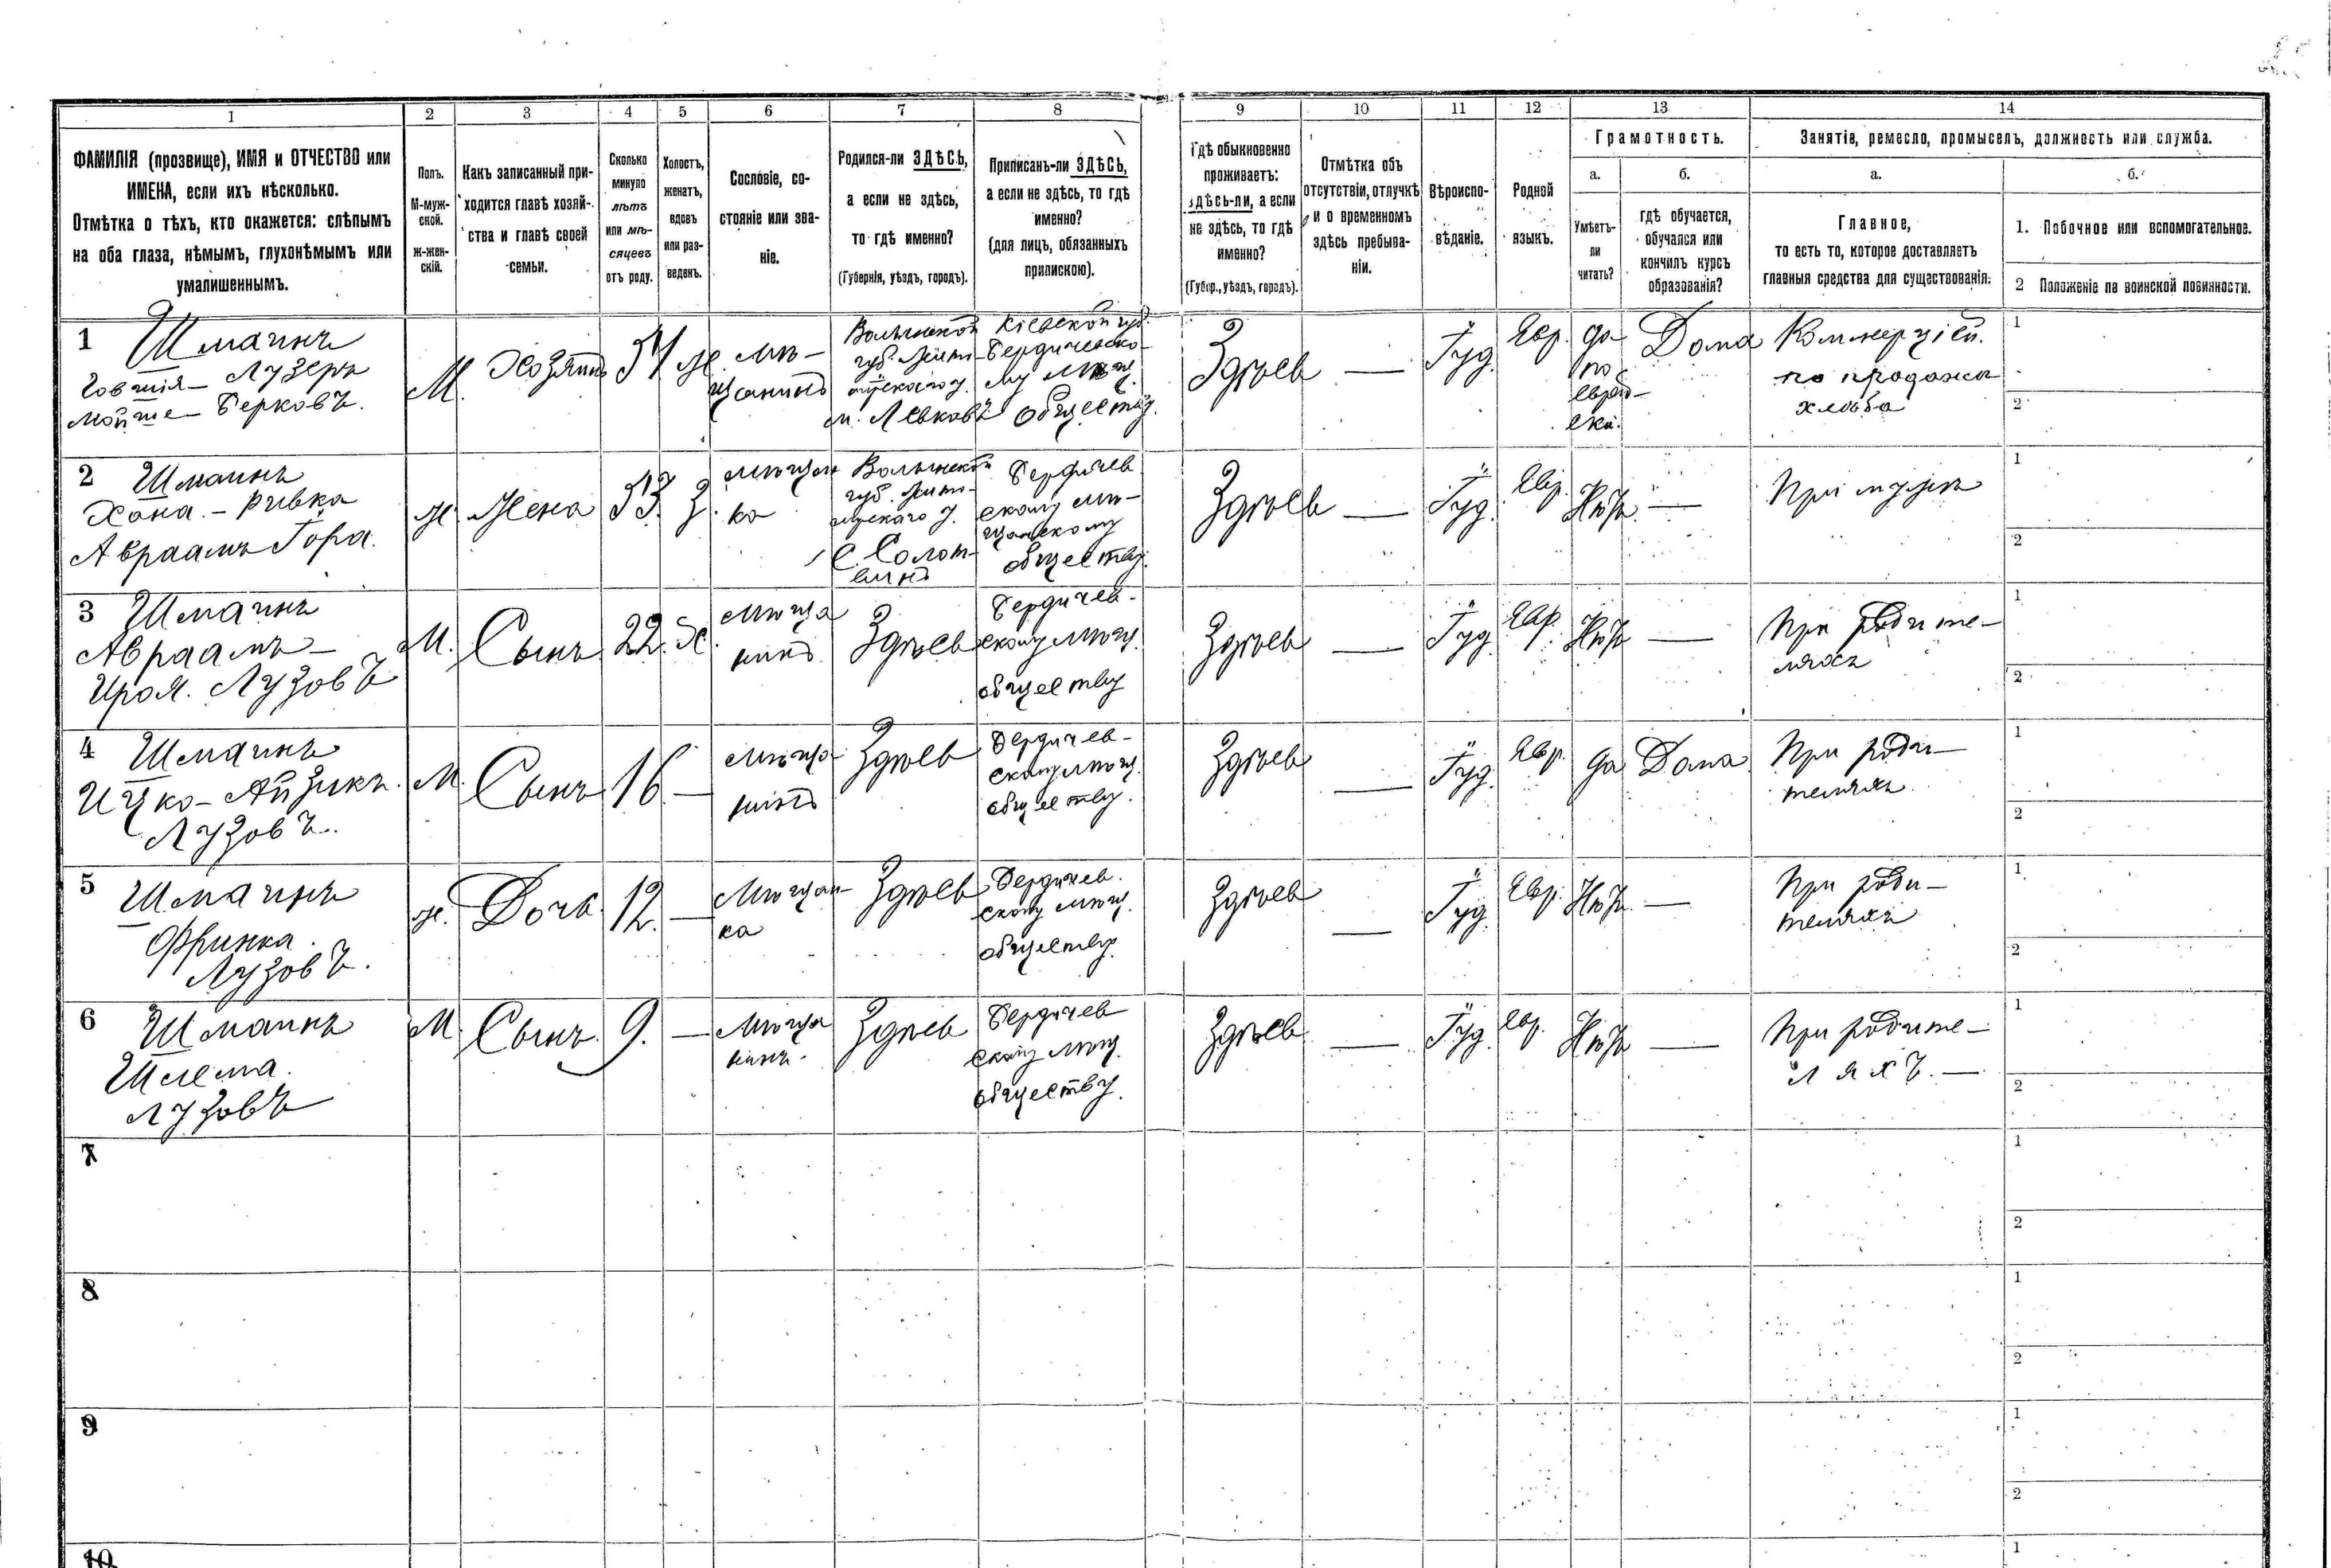 1 2 3 4 5 6 7 8 9 10 11 12 13 14
ФАМИЛІЯ (прозвище), ИМЯ и ОТЧЕСТВО или
ИМЕНА, если ихъ нѣсколько.
Отмѣтка о тѣхъ, кто окажется: слѣпымъ
на оба глаза, нѣмымъ, глухонѣмымъ или
умалишеннымъ.
Полъ.
М-муж-
ской.
Ж-жен-
скій.
Какъ записанный при-
ходится главѣ хозяй-
ства и главѣ своей
семьи.
Сколько
минуло
лѣтъ
или мѣ-
сяцевъ
отъ роду.
Холостъ,
женатъ,
вдовъ
или раз-
веденъ.
Сословіе, со-
стояніе или зва-
ніе.
Родился-ли ЗДѢСЬ,
а если не здѣсь,
то гдѣ именно?
(Губернія, уѣздъ, городъ).
Приписанъ-ли ЗДѢСЬ,
а если не здѣсь, то гдѣ
именно?
(для лицъ, обязанныхъ
припискою).
Гдѣ обыкновенно
проживаетъ:
здѣсь-ли, а если
не здѣсь, то гдѣ
именно?
(Губер., уѣздъ, городъ).
Отмѣтка объ
отсутствіи, отлучкѣ
и о временномъ
здѣсь пребыва-
ніи.
Вѣроиспо-
вѣданіе.
Родной
языкъ.
Грамотность.
а.
Умѣетъ-
ли
читать?
б.
гдѣ обучается,
обучался или
кончилъ курсъ
образованія?
Занятія, ремесло, промыселъ, должность или служба.
а.
Главное,
то есть то, которое доставляетъ
главныя средства для существованія.
б.
1. Побочное или вспомогательное.
2 Положеніе по воинской повинности.
1 Шмаинъ
Лузеръ
Мойше Берковъ.
М.
Хозяинъ
Ж.
мѣ-
щанинъ
Волынской
губ. Жито-
мірскаго у.
м. Левковъ
Кіевской губ.
Бердичевско-
му мѣщ.
обществу.
Здѣсь
—
Іуд.
Евр.
да
по
еврей-
ски.
Дома
Коммерціей.
по продажи
хлѣба
1
2
2 Шмаинъ
Хана - Ривка
Авраамъ
ж.
Жена
53.
З.
мѣщан
ка
Волынской
губ. Жито-
мірскаго у.
С. Солот-
винъ
Бердичев
скому мѣ-
щанскому
обществу.
Здѣсь
—
Іуд.
Евр.
Нѣтъ.
—
При мужѣ
1
2
3 Шмаинъ
Авраамъ -
Лузовъ
М.
Сынъ.
22.
Х.
мѣща
нинъ
Здѣсь
Бердичев-
скому мѣщ.
обществу
Здѣсь
—
Іуд.
Евр.
Нѣтъ
—
При родите-
ляхъ
1
2
4 Шмаинъ
Ицко - Айзикъ.
Лузовъ.
М.
Сынъ
16
—
мѣща
нинъ
Здѣсь
Бердичев-
скому мѣщ.
обществу.
Здѣсь
—
Іуд.
Евр.
да
Дома
При роди-
теляхъ
1
2
5 Шмаинъ
Фринка.
Лузовъ.
ж.
Дочь
12.
—
Мѣщан-
ка
Здѣсь
Бердичев.
скому мѣщ.
обществу.
Здѣсь
—
Іуд.
Евр.
Нѣтъ.
—
При роди-
теляхъ
1
2
6 Шмаинъ
Шлема.
Лузовъ
М
Сынъ.
9.
—
Мѣща
нинъ.
Здѣсь
Бердичев
скому мѣщ.
обществу.
Здѣсь
—
Іуд.
Евр.
Нѣтъ
—
При родите-
ляхъ. —
1
2
7
1
2
8
1
2
9
1
2
10
1